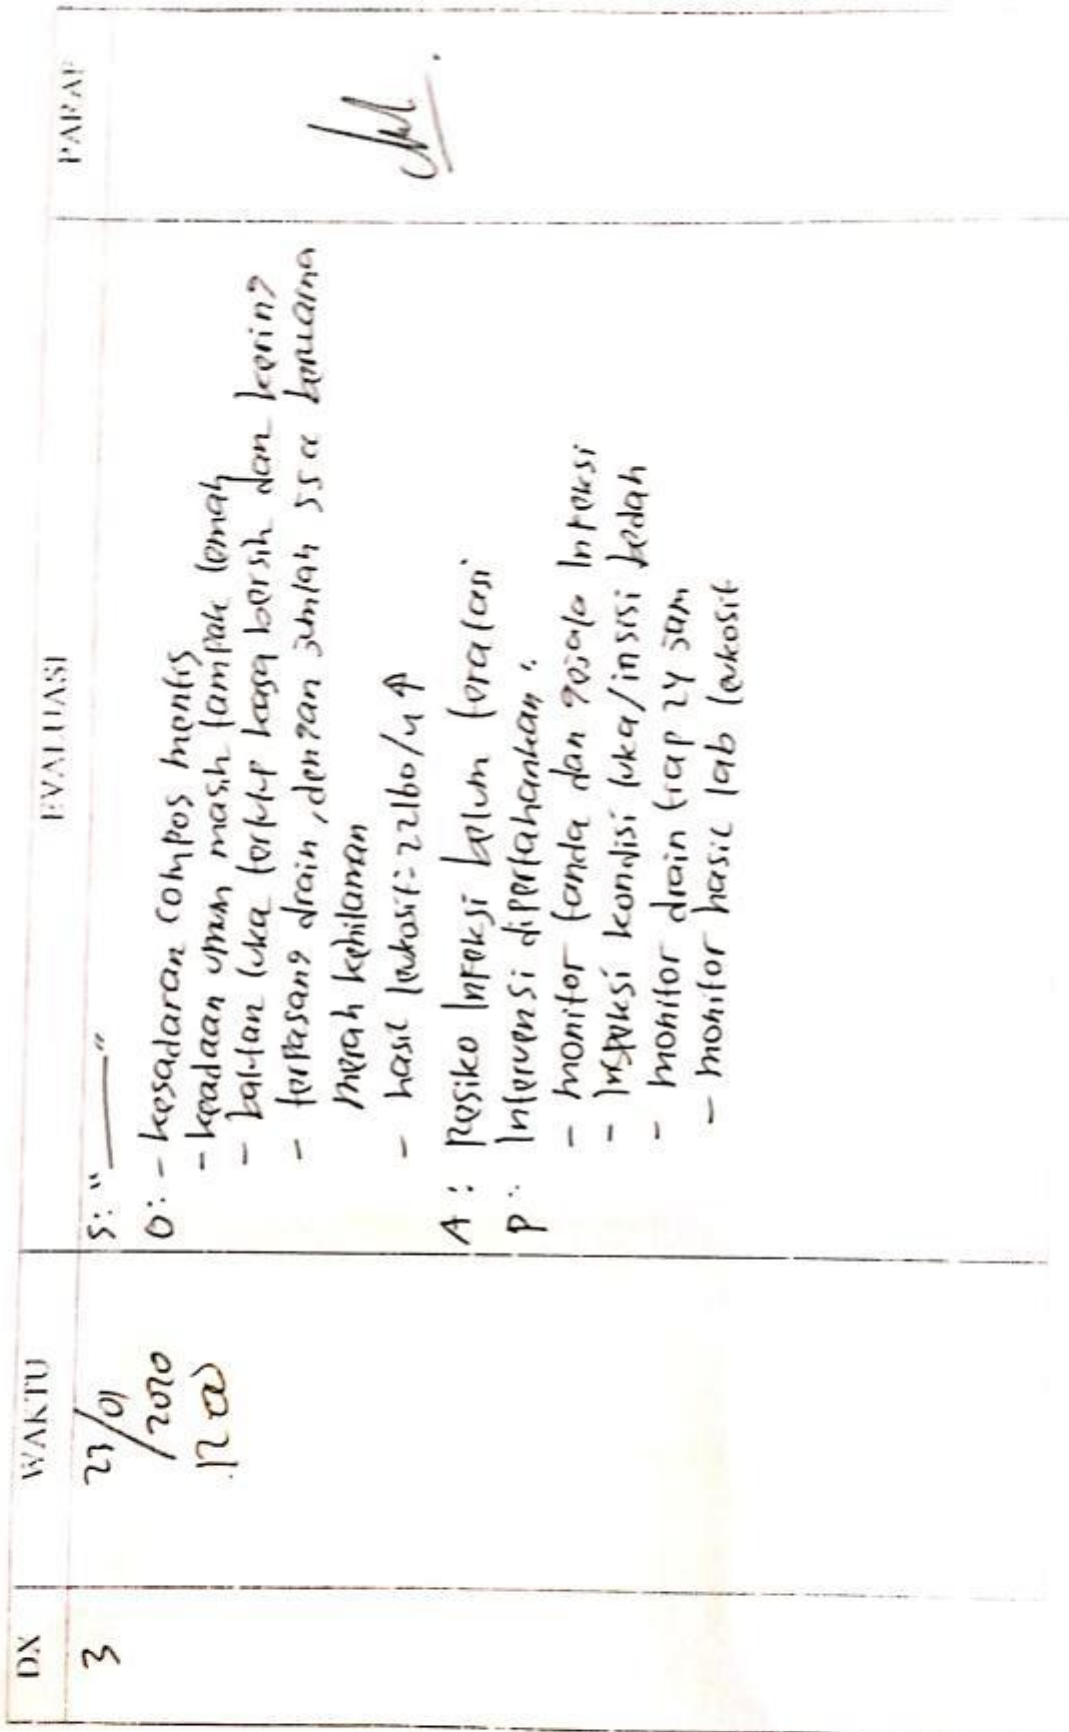 DX WAKTU EVALUASI PARAF
3 23/01/2020 12 00
S: "____"
O: - kesadaran compos mentis
- keadaan umum masih tampak lemah
- balutan luka tertutup kasa bersih dan kering
- terpasang drain, dengan jumlah 55 cc berwarna
merah kehitaman
- hasil leukosit = 22160/u ↑
A : Resiko Infeksi belum teratasi
P : Intervensi dipertahankan :
- monitor tanda dan gejala Infeksi
- Inspeksi kondisi luka/insisi bedah
- monitor drain tiap 24 jam
- monitor hasil lab leukosit